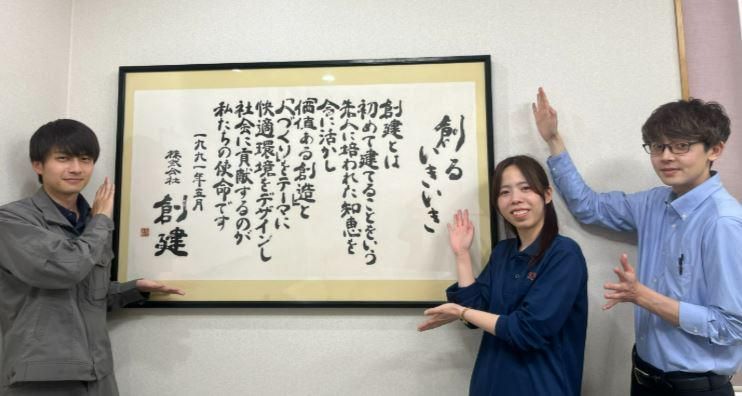 創る
いきいき
創建とは
初めて建てることをいう
先人に培われた知恵を
今に活かし
「価値ある創造」と
「人づくり」をテーマに
快適環境をデザインし
社会に貢献するのが
私たちの使命です
一九九一年五月
株式会社 創建